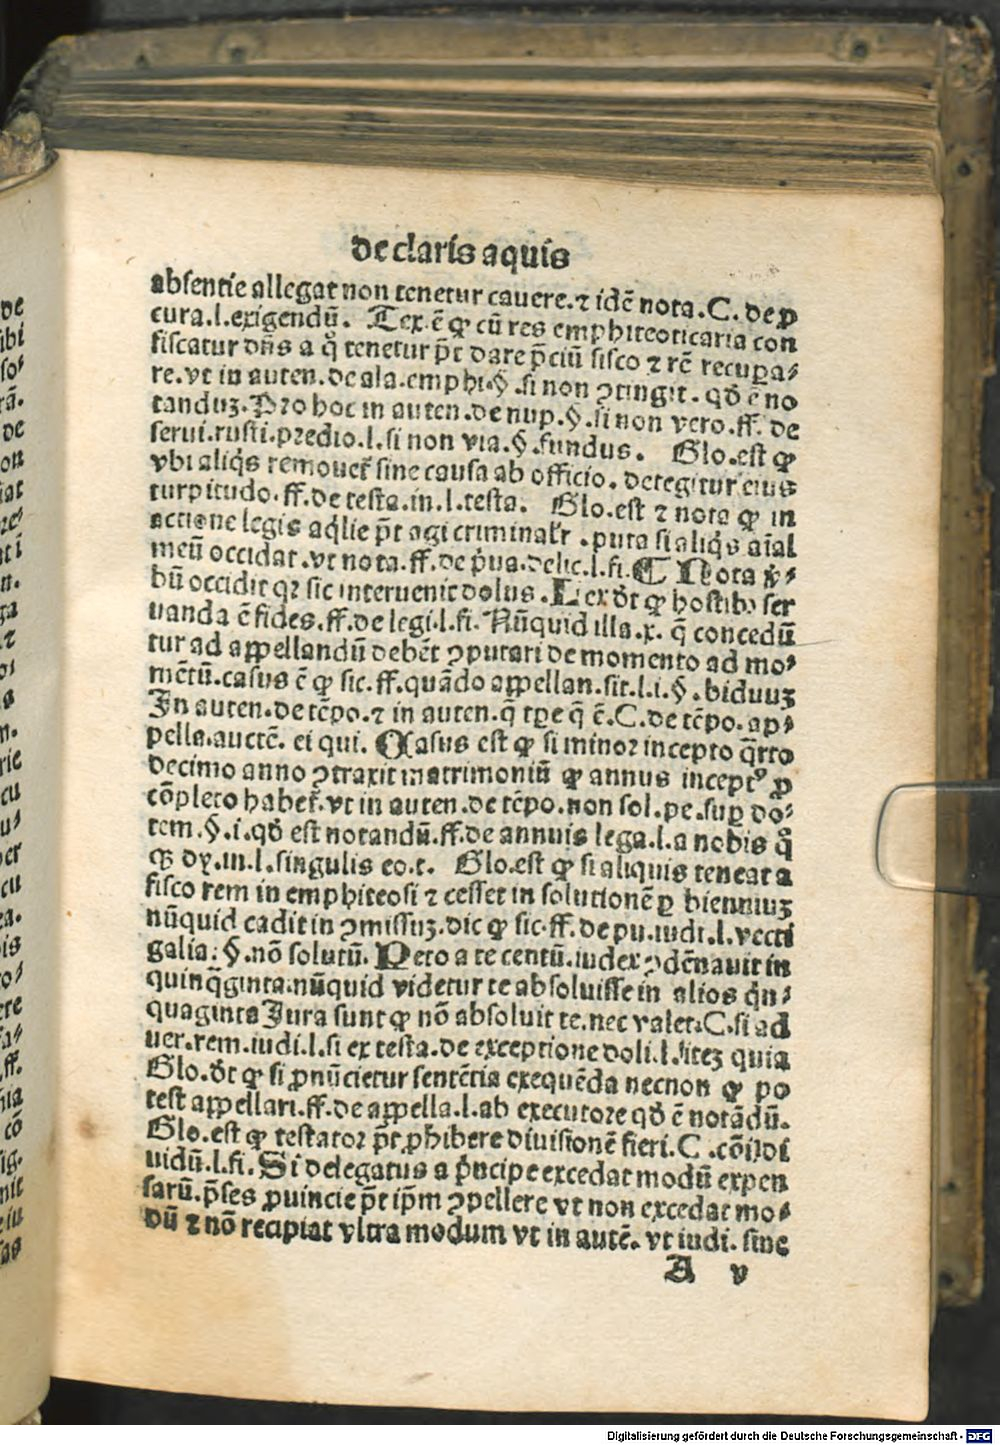 de claris aquis
absentie allegat non tenetur cauere.⁊ idē nota.C. de ꝓ
cura.l.exigendū. Tex.ē ꝙ cū res emphiteoticaria con
fiscatur dn̄s a q̊ tenetur p̄t dare p̄ciū fisco ⁊ rē recuꝑa⸗
re.vt in auten.de ala.emphi.§.si non ꝯtingit. qd̄ ē no
tanduꝫ.Pro hoc in auten.de nup.§.si non vero.ff. de
serui.rusti.predio.l.si non via.§.fundus. Glo.est ꝙ
vbi aliq̄s remouet̄ sine causa ab officio. detegitur eius
turpitudo.ff.de testa.in.l.testa. Glo.est ⁊ nota ꝙ in
actione legis aq̄lie p̄t agi criminalr̄.puta si aliq̄s aīal
meū occidat.vt nota.ff.de p̄ua.delic.l.fi.C Nota
bū occidit qꝛ sic interuenit dolus.Lex dr̄t ꝙ hostibꝰ ser
uanda ē fides.ff.de legi.l.fi. Nūquid illa.x. q̄ concedū
tur ad appellandū debēt ꝯputari de momento ad mo⸗
mētū.casus ē ꝙ sic.ff.quādo appellan.sit.l.i.§.biduuꝫ
In auten.de tēpo.⁊ in auten.q̄ tꝑe q̄ ē.C.de tēpo.ap⸗
pella.auctē. ei qui. Casus est ꝙ si minor incepto q̄rto
decimo anno ꝯtraxit matrimoniū ꝙ annus inceptꝰ ꝓ
cōpleto habet̄.vt in auten.de tēpo.non sol.pe.suꝑ do⸗
tem.§.i.qd̄ est notandū.ff.de annuis lega.l.a nobis q̊
ꝙ dꝫ.in.l.singulis eo.t. Glo.est ꝙ si aliquis teneat a
fisco rem in emphiteosi ⁊ cesset in solutionē ꝑ bienniuꝫ
nūquid cadit in ꝯmissuꝫ.dic ꝙ sic.ff.de pu.iudi.l.vecti
galia.§.nō solutū. Peto a te centū.iudex ꝯdēnauit in
quinq̄ginta.nūquid videtur te absoluisse in alios q̄n⸗
quaginta Jura sunt ꝙ nō absoluit te.nec valet.C.si ad
uer.rem.iudi.l.si ex testa.de exceptione doli.l.liteꝫ quia
Glo.dr̄t ꝙ si ꝓnūcietur sentētia exequēda necnon ꝙ po
test appellari.ff.de appella.l.ab executore qd̄ ē notādū.
Glo.est ꝙ testator p̄t ꝓhibere diuisionē fieri.C.cōi)di
uidū.l.fi.Si delegatus a p̄ncipe excedat modū expen
sarū.p̄ses ꝓuincie p̄t ip̄m ꝯpellere vt non excedat mo⸗
dū ⁊ nō recipiat vltra modum vt in autē. vt iudi. sine
A v
de
ibi
so⸗
rā.
de
Digitalisierung gefördert durch die Deutsche Forschungsgemeinschaft - DFG